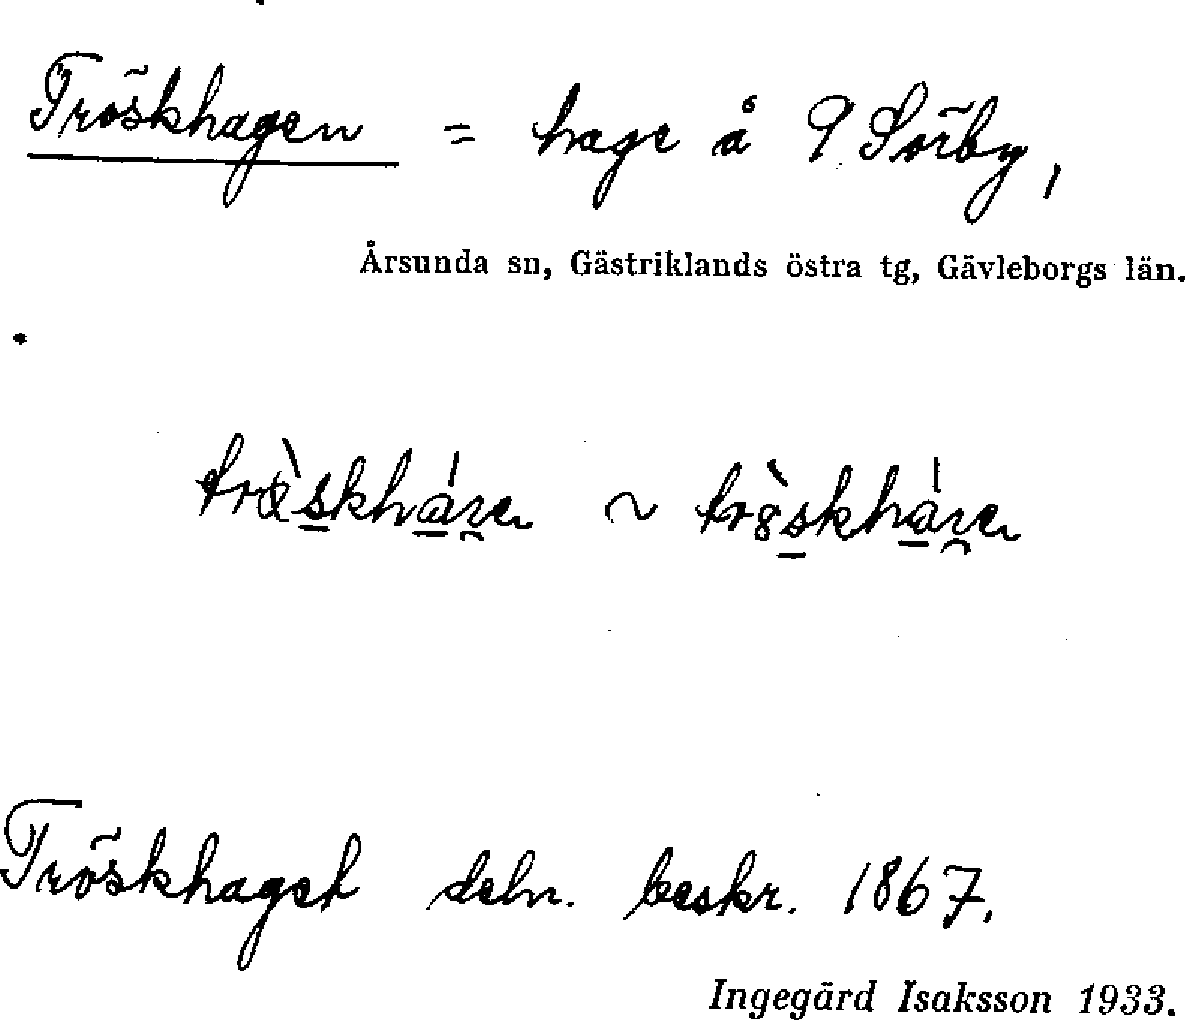 Tröskhagen = hage å 9 Sörby,
Årsunda sn, Gästriklands östra tg, Gävleborgs län.
~
Tröskhaget deln. beskr. 1867.
Ingegärd Isaksson 1933.